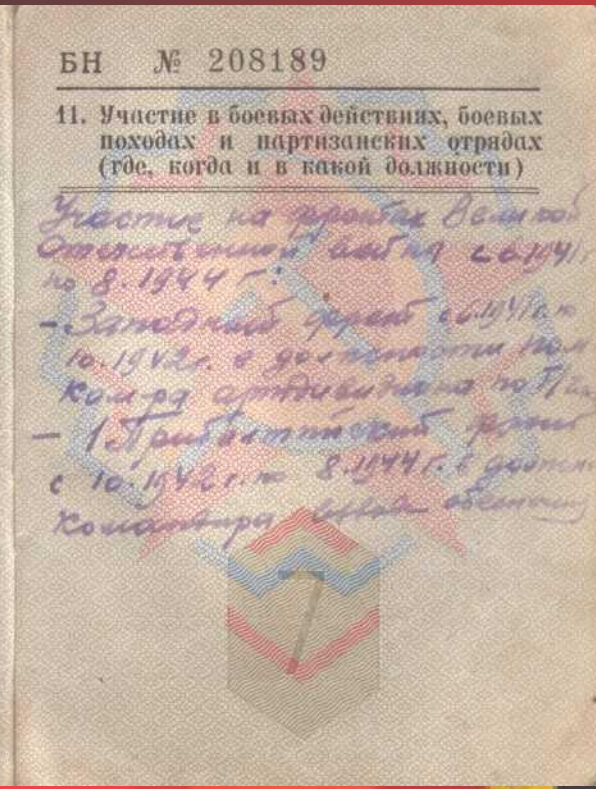 БН № 208189
11. Участие в боевых действиях, боевых
походах и партизанских отрядах
(где, когда и в какой должности)
Участие на фронтах Великой
Отечественной войны с 6.1941г
по 8.1944 г:
- Западный фронт с 6.1941г. по
10.1942г. в должности пом
ком-ра артдивизиона по
- 1 Прибалтийский фронт
с 10.1942 г. по 8.1944 г. в должн.
командира